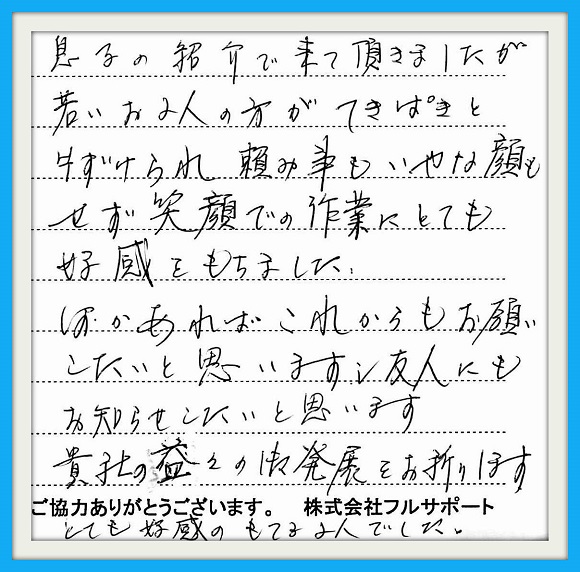 息子の紹介で来て頂きましたが
若いお2人の方がてきぱきと
片ずけられ 頼み事もいやな顔も
せず笑顔での作業にとても
好感をもちました。
何かあればこれからもお願い
したいと思いますし友人にも
お知らせしたいと思います
貴社の益々の御発展をお祈ります
ご協力ありがとうございます。 株式会社フルサポート
とても好感のもてる2人でした。